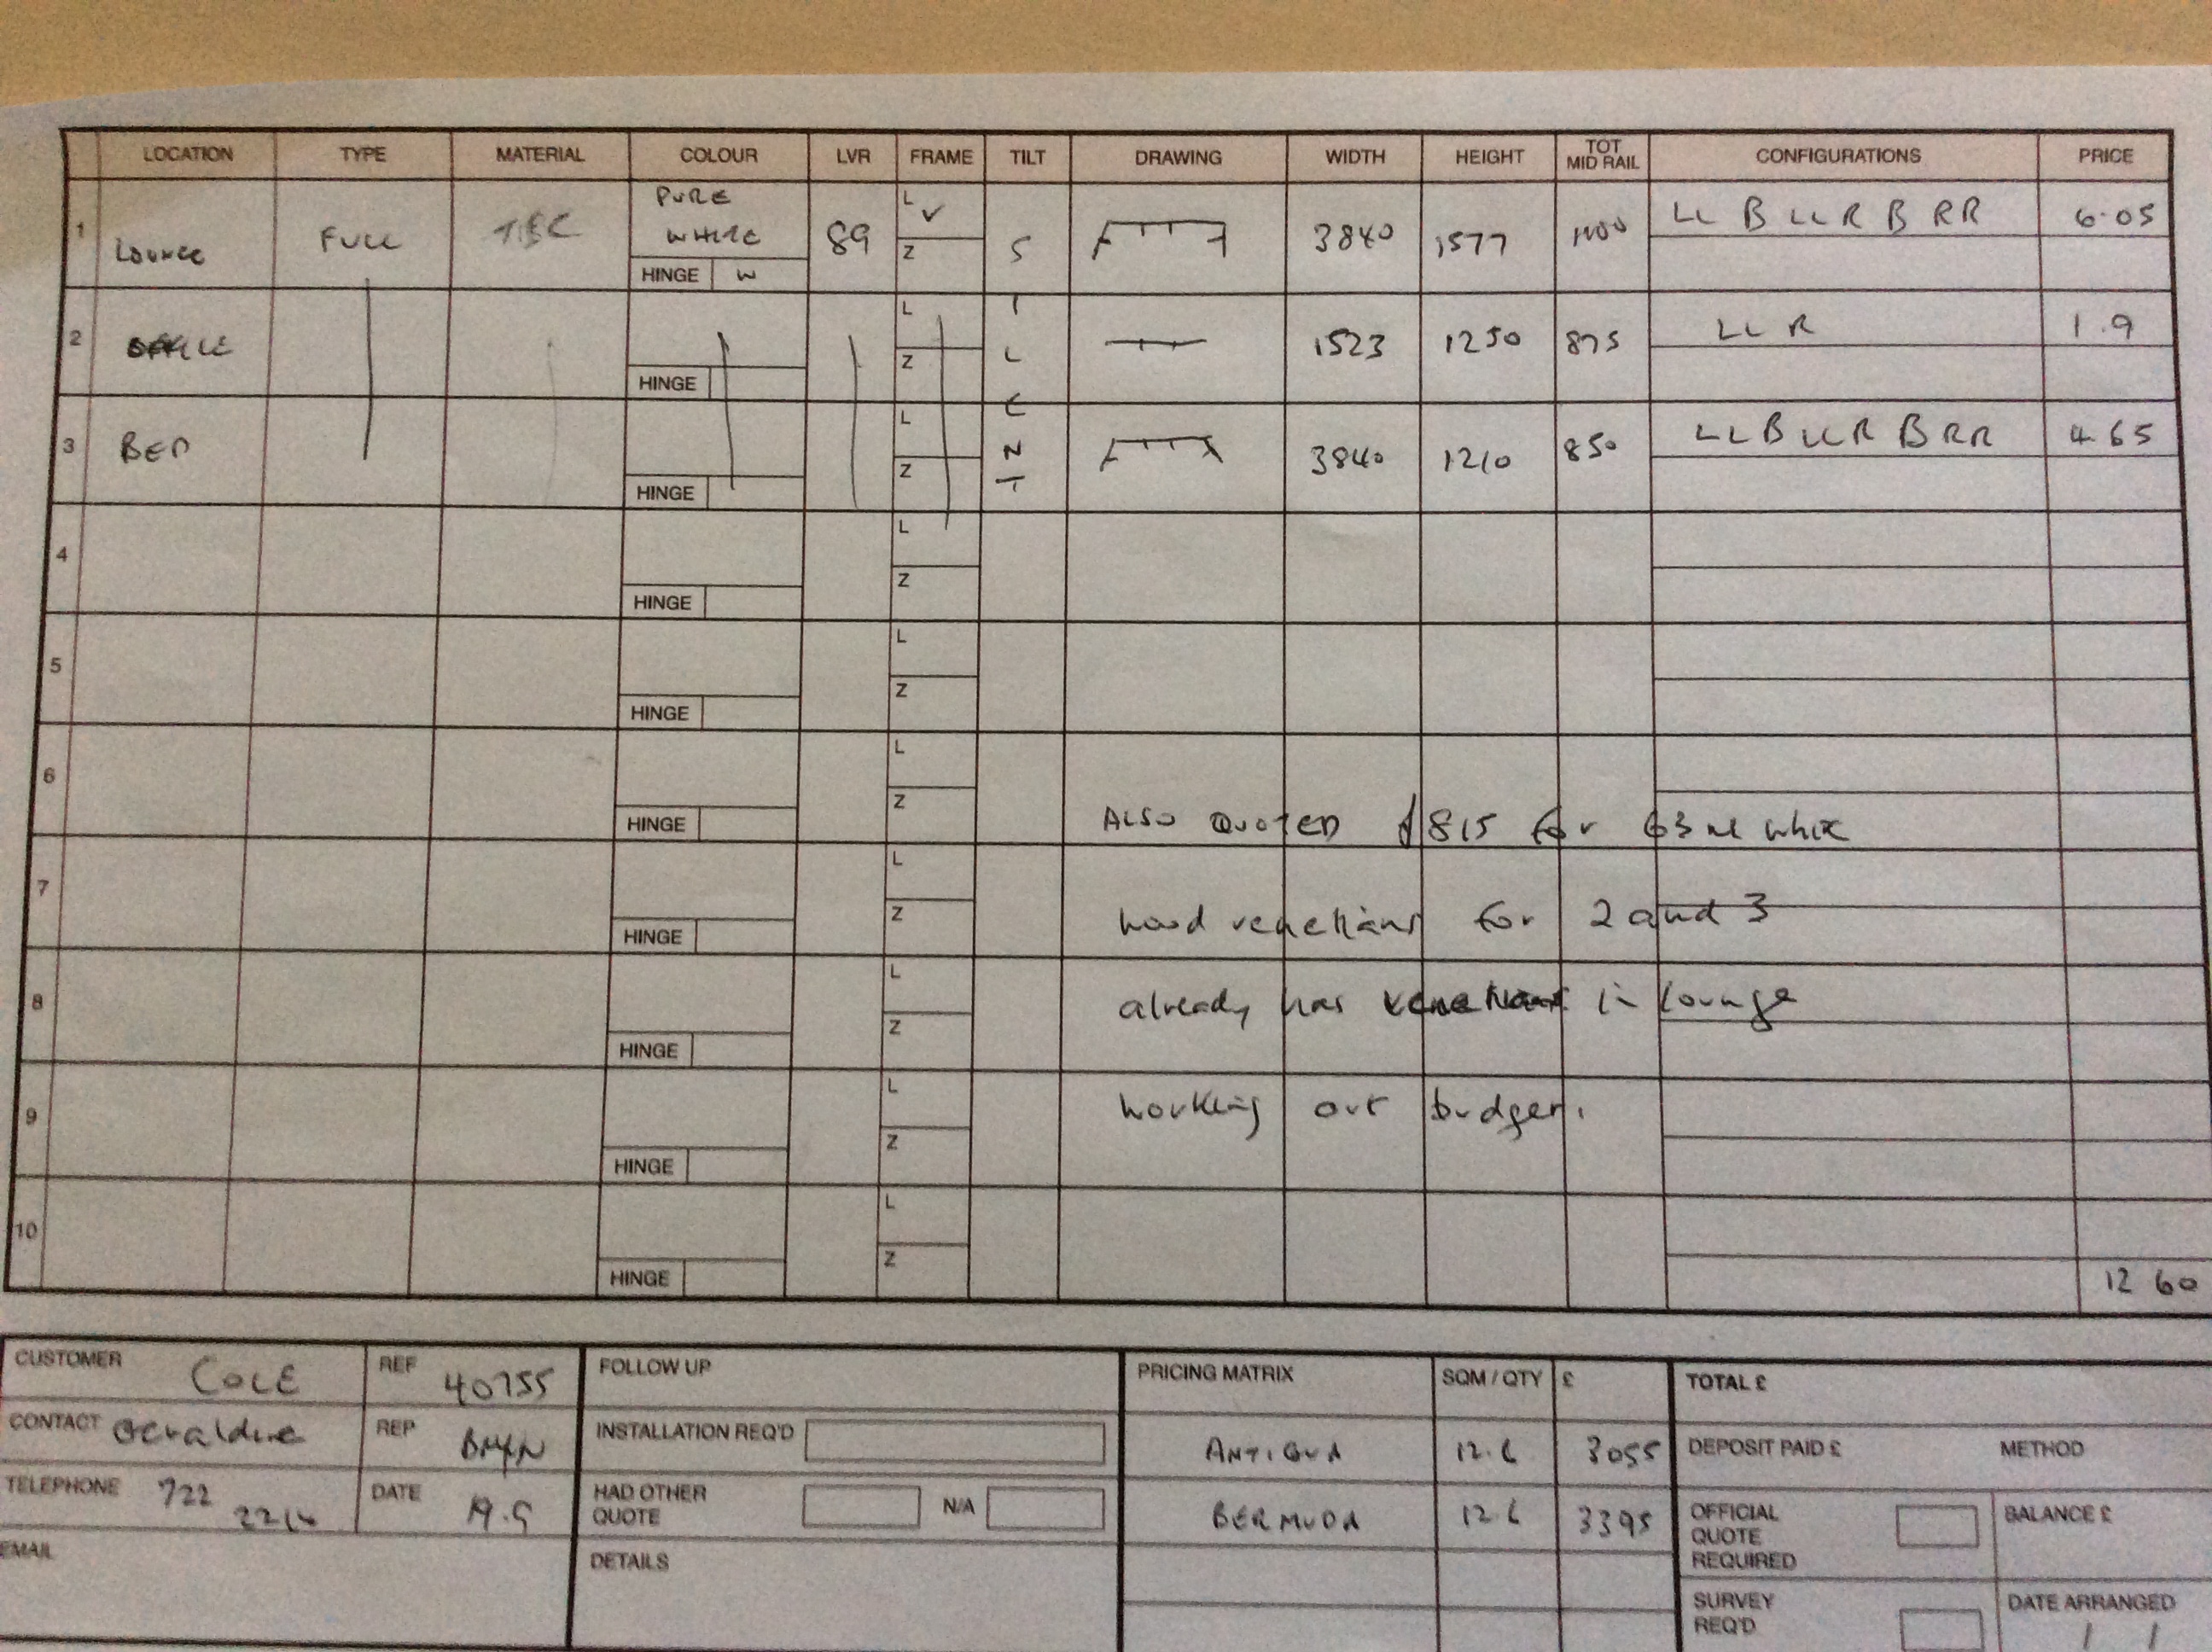 LOCATION TYPE MATERIAL COLOUR LVR FRAME TILT DRAWING WIDTH HEIGHT TOT MID RAIL CONFIGURATIONS PRICE
1 LOUNGE FULL TBC PURE WHITE HINGE W 89 L ✓ Z S 3840 1577 1100 LL B LL R B RR 6.05
2 OFFICE HINGE L Z I L 1523 1250 875 LL R 1.9
3 BED HINGE L Z E N T 3840 1210 850 LL B LL R B RR 4.65
4 HINGE L Z
5 HINGE L Z
6 HINGE L Z
ALSO QUOTED £815 for 63 ml white
7 HINGE L Z
wood venetians for 2 and 3
8 HINGE L Z
already has venetians in lounge
9 HINGE L Z
working out budget.
10 HINGE L Z
12 60
CUSTOMER COLE REF 40755
CONTACT Geraldine REP
TELEPHONE 722 DATE 19.9
EMAIL
FOLLOW UP
INSTALLATION REQ'D
HAD OTHER QUOTE N/A
DETAILS
PRICING MATRIX SQM / QTY £
ANTIGUA 12.6 3055
BERMUDA 12.6 3395
TOTAL £
DEPOSIT PAID £ METHOD
OFFICIAL QUOTE REQUIRED BALANCE £
SURVEY REQ'D DATE ARRANGED
/ /